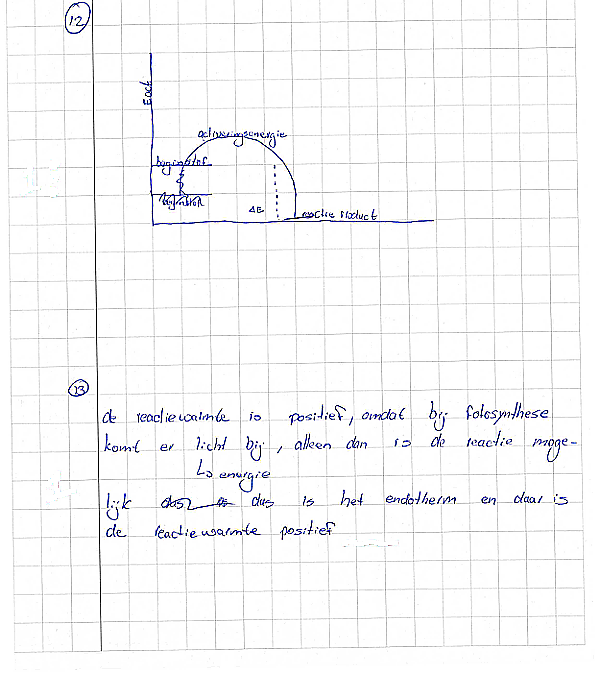 12
Eact
activeringsenergie
beginstof
beginstof
ΔE
reactie product
13
de reactiewarmte is positief, omdat bij fotosynthese
komt er licht bij, alleen dan is de reactie moge-
↳ energie
lijk dus is het endotherm en daar is
de reactiewarmte positief